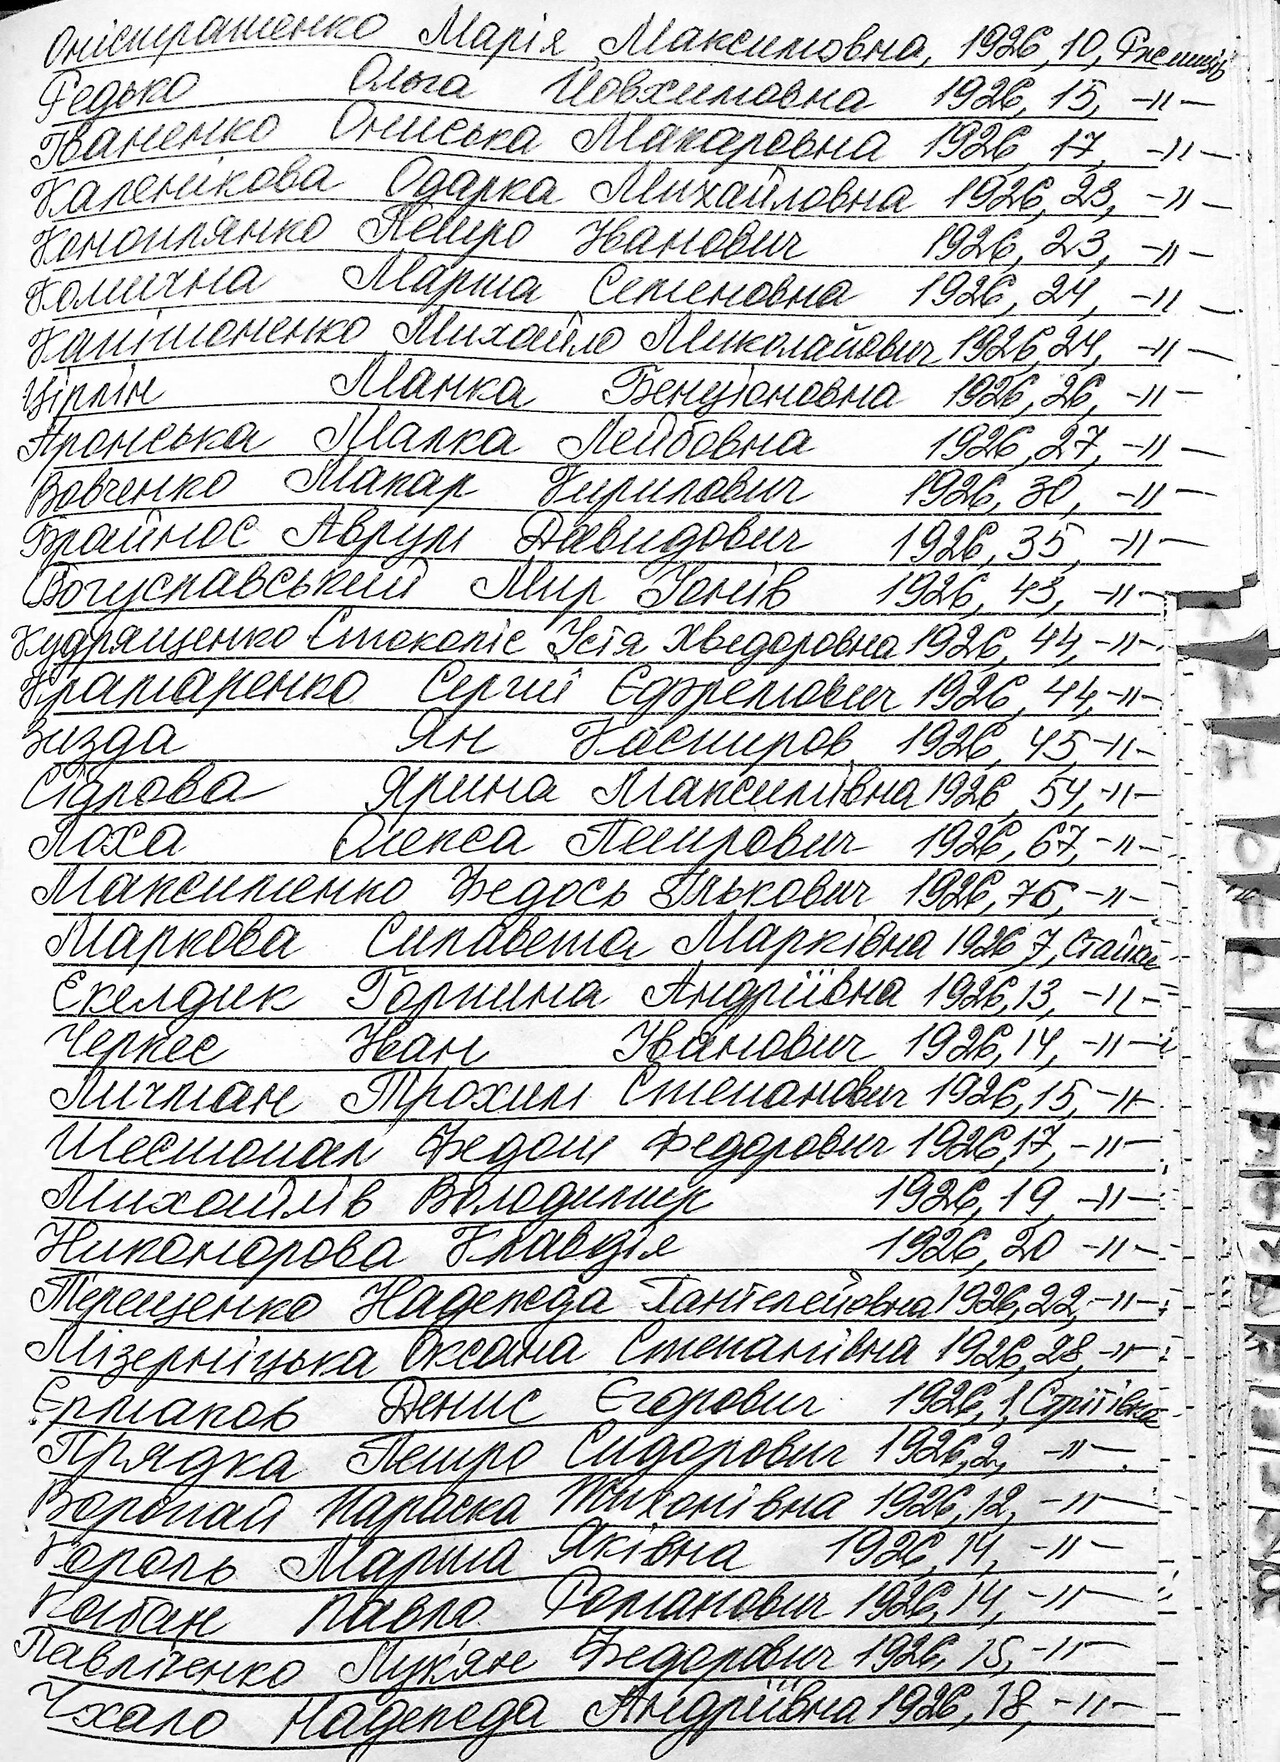 Оністрашенко Марія Максимовна, 1926, 10, Ржищів
Редько Ольга Йовхимовна 1926, 15, -"-
Іваненко Ониська Макаровна 1926, 17, -"-
Каленікова Одарка Михайловна 1926, 23, -"-
Коноплянко Петро Иванович 1926, 23, -"-
Марта Семеновна 1926, 24, -"-
Михайло Миколайович 1926, 24, -"-
Цірлін Манка Бенціоновна 1926, 26, -"-
Малка Лейбовна 1926, 27, -"-
Вовченко Макар Кирилович 1926, 30, -"-
Аврум Давидович 1926, 35, -"-
Богуславський Мир 1926, 43, -"-
Кудрященко Стокопіс Устя Хведоровна 1926, 44, -"-
Крамаренко Сергій Єфремович 1926, 44, -"-
Визда Ян Касииров 1926, 45 -"-
Ярина Максимівна 1926, 54, -"-
Лоха Олекса Петрович 1926, 67, -"-
Максименко Федось Ількович 1926, 75, -"-
Маркова Силавета Марківна 1926 7, Стайки
Екелдик Горпина Андріївна 1926, 13, -"-
Черкес Иван Іванович 1926, 14, -"-
Личман Трохим Степанович 1926, 15, -"-
Шестопал Федот Федорович 1926, 17, -"-
Михайлів Володимир 1926, 19, -"-
Никонорова Клавдія 1926, 20 -"-
Терещенко Надежда Пантелейовна 1926, 22, -"-
Мізерніцька Оксана Степанівна 1926, 28, -"-
Єрмаков Денис Єгорович 1926, 1,
Прядка Петро Сидорович 1926, 2, -"-
Воропай Параска Тихонівна 1926, 12, -"-
Король Марта Яківна 1926, 14, -"-
Павло Романович 1926, 14, -"-
Павліченко Лукян Федорович 1926, 15, -"-
Чхало Надежда Андріївна 1926, 18, -"-